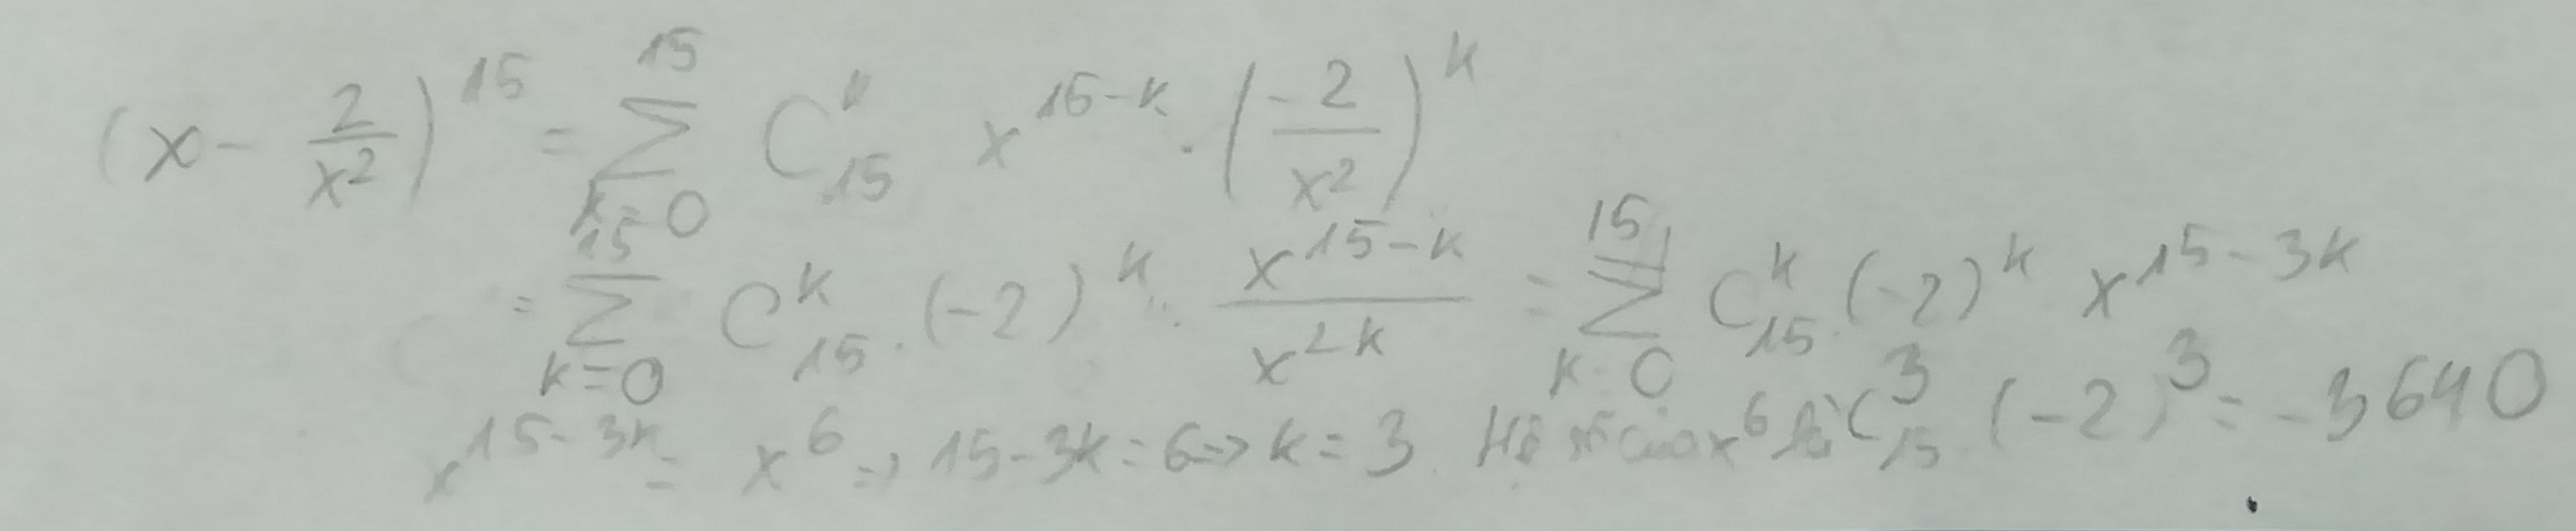 (x - \frac{2}{x^2})^{15} = \sum_{k=0}^{15} C_{15}^{k} x^{15-k} . (\frac{-2}{x^2})^k
= \sum_{k=0}^{15} C_{15}^{k} . (-2)^k . \frac{x^{15-k}}{x^{2k}} = \sum_{k=0}^{15} C_{15}^{k} . (-2)^k x^{15-3k}
x^{15-3k} = x^6 => 15-3k = 6 => k = 3. Hệ số của x^6 là C_{15}^{3} . (-2)^3 = -3640